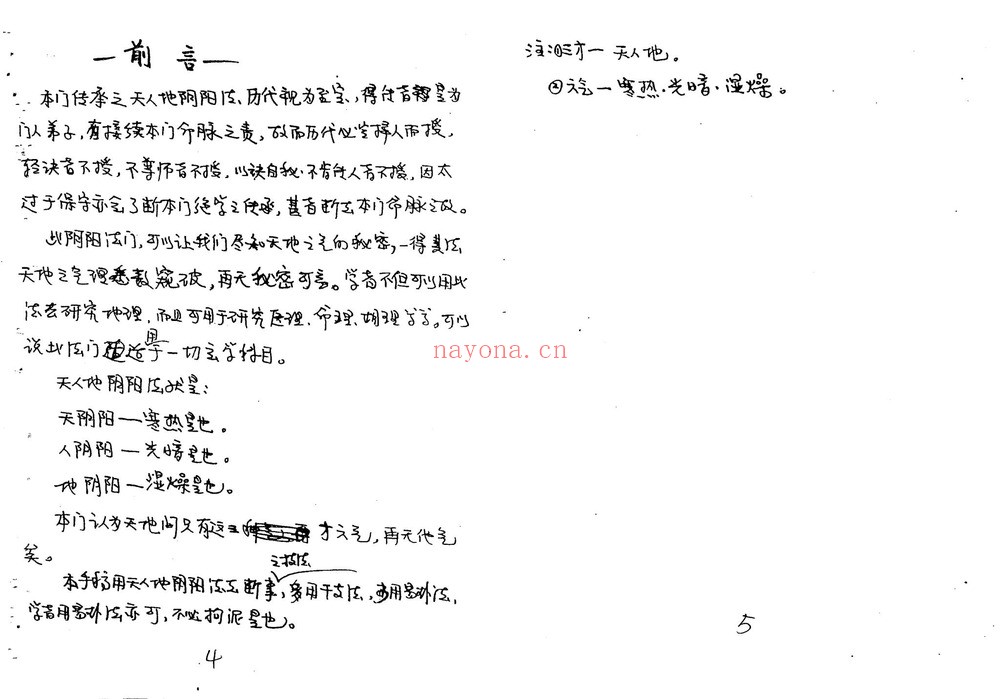 —前言—
本门传承之天人地阴阳法、历代视为至宝、得传者皆为
门人弟子,有接续本门命脉之责,故而历代必宝择人而授,
轻诀者不授,不尊师者不授,以诀自秘·不肯传人者不授,因太
过于保守亦会了断本门绝学之传承,甚者断去本门命脉之故。
此阴阳法门,可以让我们尽知天地之气的秘密,一得其法
天地之气理悉数窥破,再无秘密可言。学者不但可以用此
法去研究地理,而且可用于研究医理、命理、相理等等。可以
说此法门适用于一切玄学科目。
天人地阴阳法状是:
天阴阳—寒热是也。
人阴阳—光暗是也。
地阴阳—湿燥是也。
本门认为天地间只有这三才六气,再无他气
矣。
之技法
本手稿用天人地阴阳法去断事,多用干支法,少用易卦法,
学者用易卦法亦可,不必拘泥是也。
4
注:①三才—天人地。
②六气—寒热·光暗·湿燥。
5
nayona.cn